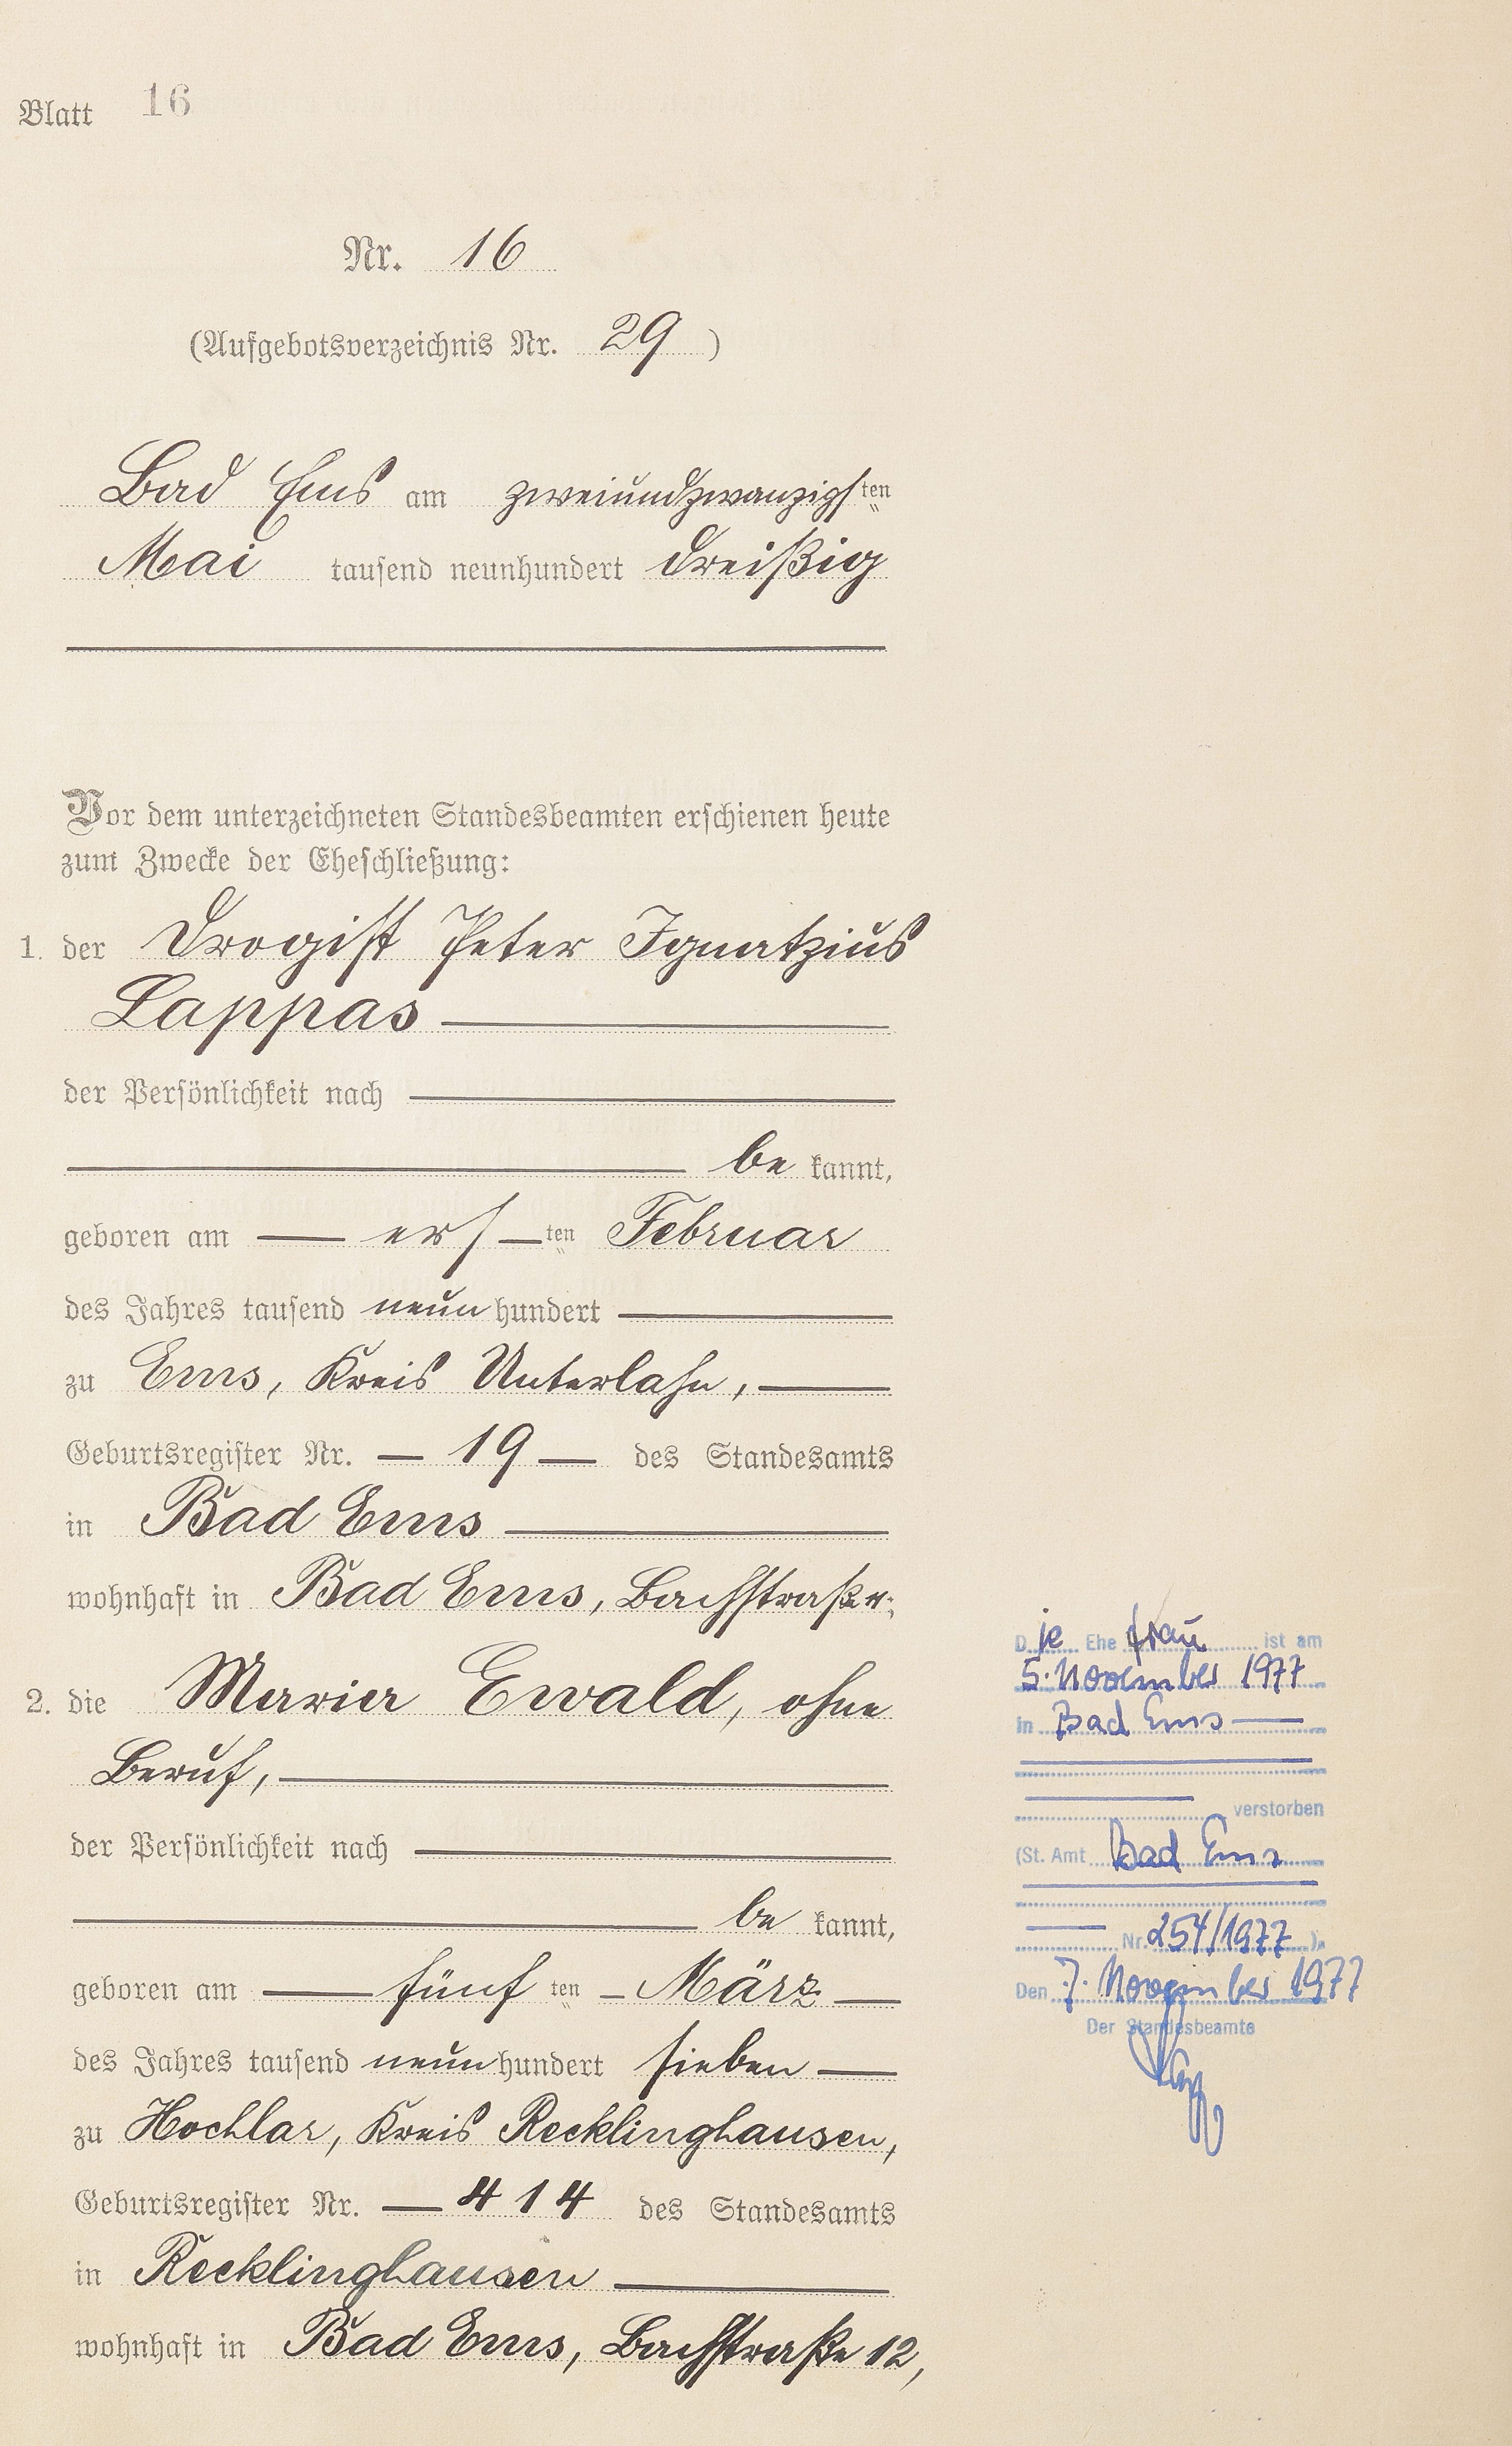 Blatt 16
Nr. 16
(Aufgebotsverzeichnis Nr. 29)
Bad Ems am zweiundzwanzigsten
Mai tausend neunhundert dreißig
Vor dem unterzeichneten Standesbeamten erschienen heute
zum Zwecke der Eheschließung:
1. der Drogist Peter Ignatzius
Lappas
der Persönlichkeit nach
be kannt,
geboren am ersten Februar
des Jahres tausend neun hundert
zu Ems, Kreis Unterlahn,
Geburtsregister Nr. 19 des Standesamts
in Bad Ems
wohnhaft in Bad Ems, Bachstraße;
2. die Maria Ewald, ohne
Beruf,
der Persönlichkeit nach
be kannt,
geboren am fünften März
des Jahres tausend neun hundert sieben
zu Hochlar, Kreis Recklinghausen,
Geburtsregister Nr. 414 des Standesamts
in Recklinghausen
wohnhaft in Bad Ems, Bachstraße 12,
Die Ehefrau ist am
5. November 1977
in Bad Ems
verstorben
(St. Amt Bad Ems
Nr. 254/1977).
Den 7. November 1977
Der Standesbeamte